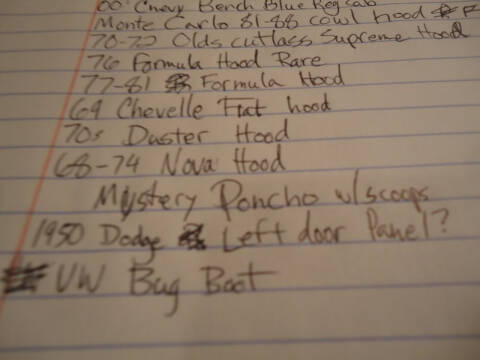 Chevy Bench Blue Reg cab
Monte Carlo 81-88 cowl hood
70-72 Olds cutlass Supreme Hood
76 Formula Hood Rare
77-81 Formula Hood
69 Chevelle Flat hood
70s Duster Hood
68-74 Nova Hood
Mystery Poncho w/scoops
1950 Dodge Left door Panel?
VW Bug Boot